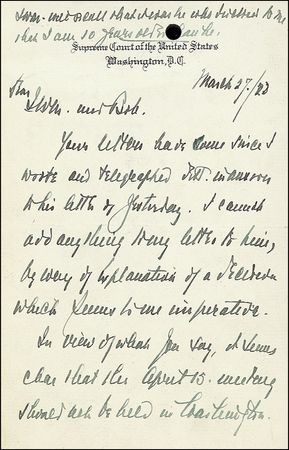 I am 10 years older than he.
Supreme Court of the United States
Washington, D.C.
March 27./23
Dear
and Bob.
Your letters have come since I
wrote and telegraphed in answer
to his letter of yesterday. I cannot
add anything to my letter to him,
by way of explanation of a decision
which seems to me imperative.
In view of what you say, it seems
clear that the April 15. meeting
should not be held in Washington.